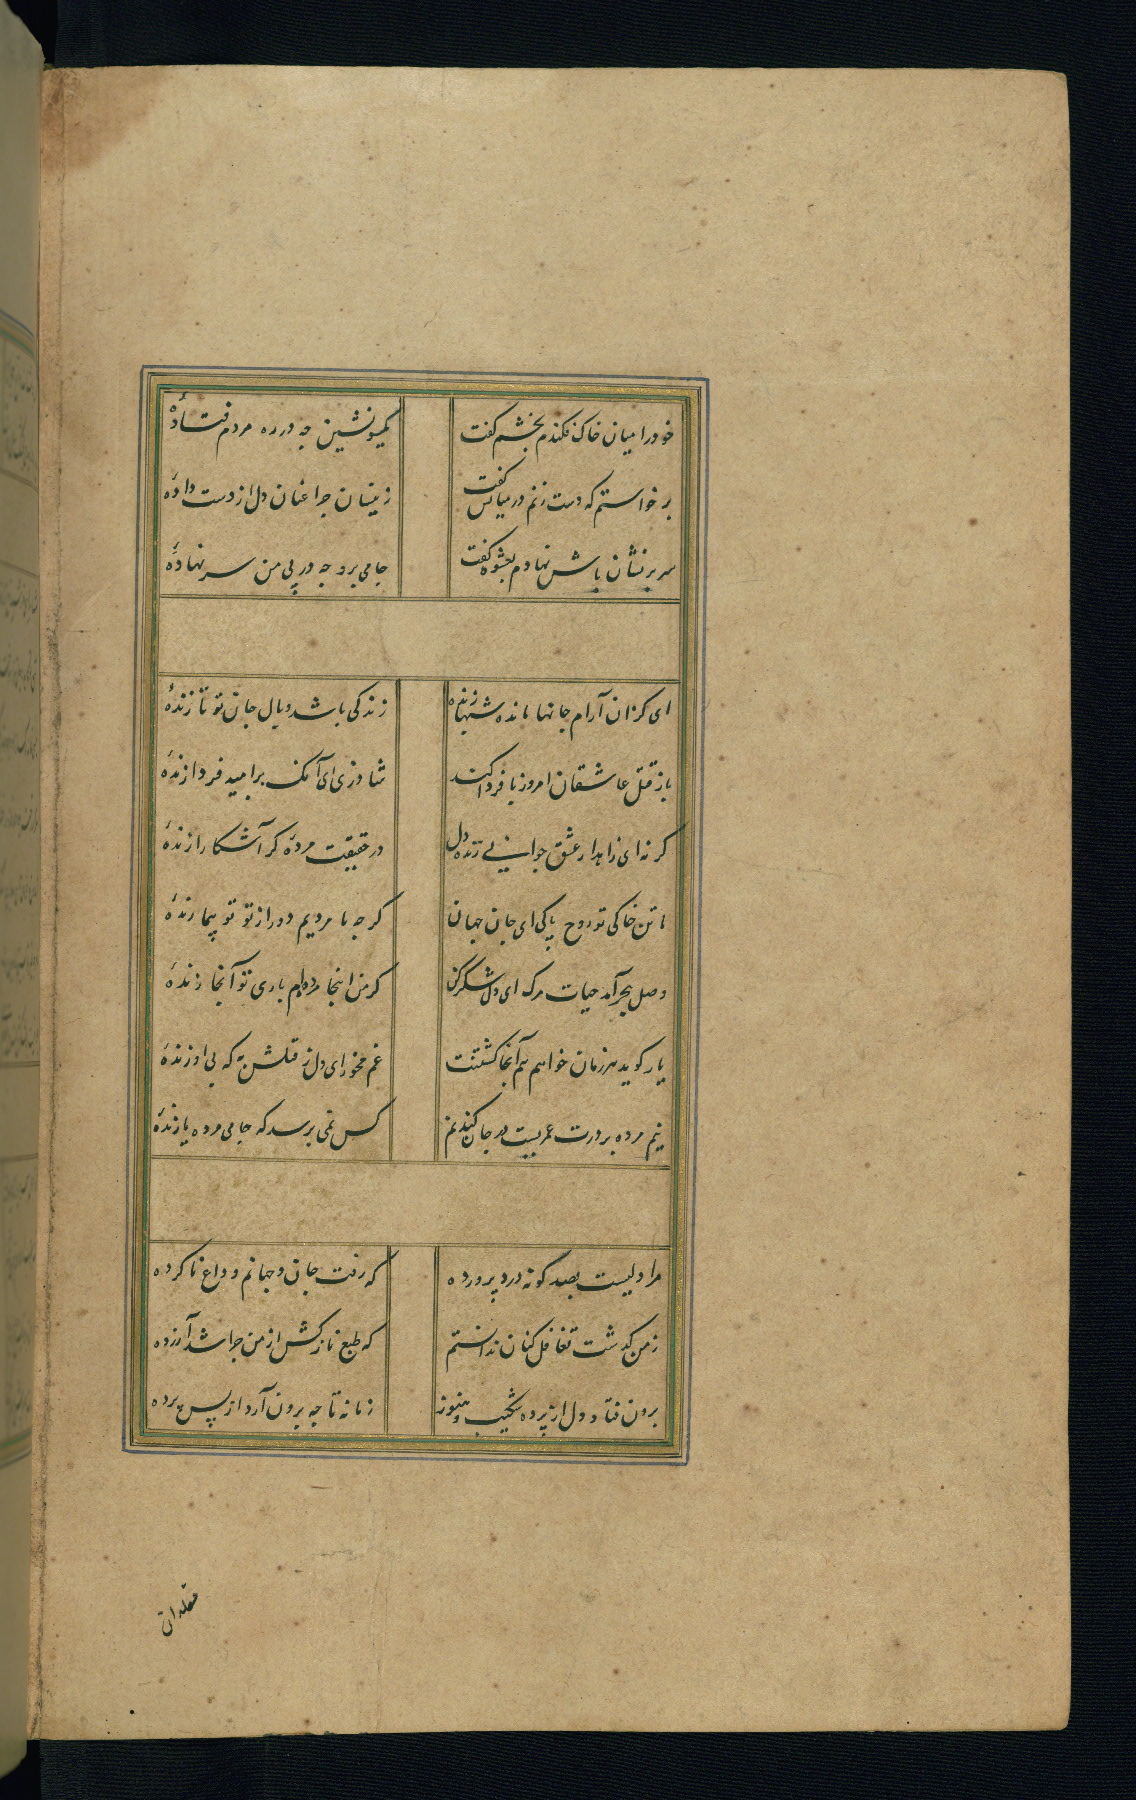 خودرا میان خاک فکندم بخشم گفت یکسو نشین چه در ره مردم فتادۀ
برخواستم که دست زنم در میانش گفت زینسان چرا عنان دل از دست دادۀ
سر بر نشان پاش نهادم بعشوه گفت جامی برو چه در پی من سر نهادۀ
ای کزان آرام جانها مانده شبها زندۀ زندگی باشد وبال جان تو تا زندۀ
باز قتل عاشقان امروز با فردا فکند شاد زی ای آنک بر امید فردا زندۀ
گر نه ای زاهد از عشق جوانی زنده دل در حقیقت مردۀ گر آشکارا زندۀ
ما تن خاکی تو روح پاکی ای جان جهان گرچه ما مردیم دور از تو تو بیما زندۀ
وصل هجر آمد حیات مرگ ای دل شکر کن گر من اینجا مردهام باری تو آنجا زندۀ
یار گوید هر زمان خواهم هم آنجا کشتنت غم مخور ای دل ز قتلش به که بی او زندۀ
نیم مرده بر درت عمریست جان کندنم کس نمی پرسد که جامی مرده یا زندۀ
مرا دلیست بصد گونه درد پرورده که رفت جان و جهانم وداع ناکرده
ز من گذشت تغافل کنان ندانستم که طبع نازکش از من چرا شد آزرده
برون فتاد دل از پرده شکیب و هنوز زمانه تا چه برون آرد از پس پرده